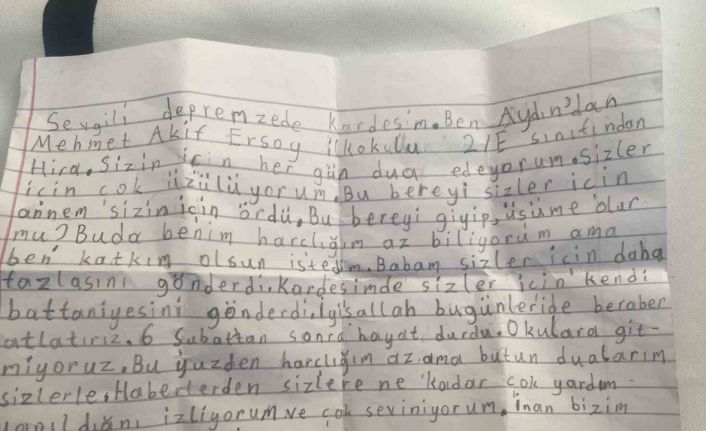 Sevgili depremzede kardesim. Ben Aydın'dan
Mehmet Akif Ersoy ilkokulu 2/E sınıfından
Hira. Sizin için her gün dua edeyorum. Sizler
icin cok üzülüyorum. Bu bereyi sizler icin
annem sizin için ördü. Bu bereyi giyip, üsüme olur
mu? Buda benim harclığım az biliyorum ama
ben katkım olsun istedim. Babam sizler icin daha
fazlasını gönderdi. Kardesimde sizler icin kendi
battaniyesini gönderdi. İyisallah bugünleride beraber
atlatırız. 6 Subattan sonra hayat durdu. Okulara git-
miyoruz. Bu yuzden harclığım az ama butun dualarım
sizlerle. Haberlerden sizlere ne kadar cok yardım
yapıldığnı izliyorum ve çok seviniyorum. İnan bizim